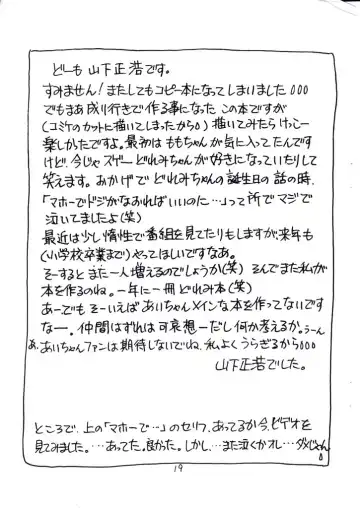 どーも 山下正浩です。
すみません！またしてもコピー本になってしまいました000
でもまあ成り行きで作る事になった この本ですが
(コミケのカットに描いてしまったから0) 描いてみたらけっこー
楽しかたですよ。最初は ももちゃんが気に入ってたんです
けど、今じゃスゲーどれみちゃんが好きになっていたりして
笑えます。おかげで どれみちゃんの誕生日の 話の時、
「マホーでドジがなおればいいのに…」って所で マジで
泣いてましたよ(笑)
最近は少し惰性で番組を見てたりもしますが、来年も
(小学校卒業まで)やってほしいですなあ。
そーするとまた一人増えるのでしょうか(笑) そんでまた私が
本を作るのね。一年に一冊どれみ本(笑)
あーでも そーいえば あいちゃんメインな本を作ってないです
なー。仲間はずれは可哀想ーだし何か考えるか。うーん
あ、あいちゃんファンは期待しないでね、私、よくうらぎるから000
山下正浩でした。
ところで、上の「マホーで…」のセリフ、あってるか今、ビデオを
見てみました。…あってた。良かった。しかし、…また泣くかオレ…ダメじゃん0
19